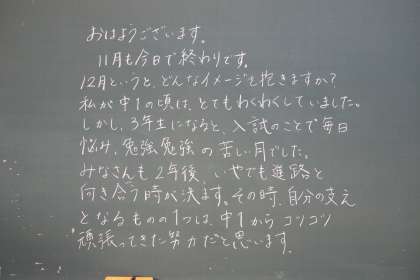 おはようございます。
11月も今日で終わりです。
12月というと、どんなイメージを抱きますか？
私が中1の頃は、とてもわくわくしていました。
しかし、3年生になると、入試のことで毎日
悩み、勉強勉強の苦しい月でした。
みなさんも2年後、いやでも進路と
向き合う時が決ます。その時、自分の支え
となるものの1つは、中1からコツコツ
頑張ってきた努力だと思います。